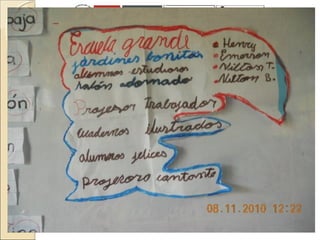 Escuela grande
jardines bonitos
alumnos estudiosos
salón adornado
Profesor trabajador
cuadernos ilustrados
alumnos felices
profesora cantante
Henry
Emerson
Milton T.
Milton B.
baja
ón
08.11.2010 12:22